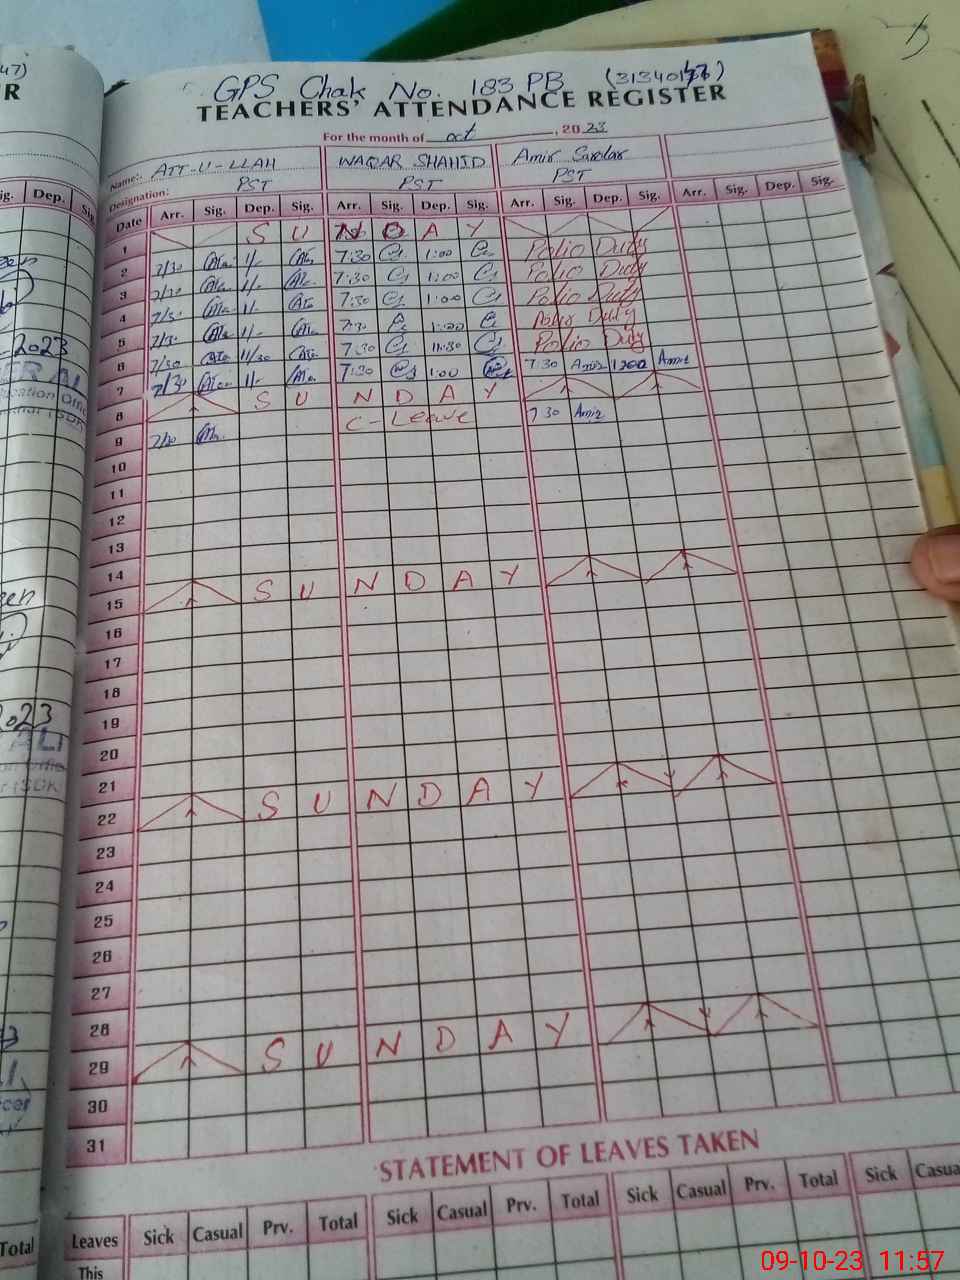 GPS Chak No. 183 PB (31340176)
TEACHERS' ATTENDANCE REGISTER
For the month of oct, 2023
Name: ATT-U-LLAH WAQAR SHAHID Amir Sardar
Designation: PST PST PST
Date Arr. Sig. Dep. Sig. Arr. Sig. Dep. Sig. Arr. Sig. Dep. Sig. Arr. Sig. Dep. Sig.
1 S U N D A Y
2 7/30 1/- 7:30 1:00 Polio Duty
3 7/30 1/- 7:30 1:00 Polio Duty
4 7/30 1/- 7:30 1:00 Polio Duty
5 7/30 1/- 7:30 1:00 Polio Duty
6 7/30 11/30 7:30 11:30 Polio Duty
7 7/30 1/- 7:30 1:00 7 30 Amir 1200 Amir
8 S U N D A Y
9 7/30 C-Leave 7 30 Amir
10
11
12
13
14
15 S U N D A Y
16
17
18
19
20
21
22 S U N D A Y
23
24
25
26
27
28
29 S U N D A Y
30
31
STATEMENT OF LEAVES TAKEN
Leaves Sick Casual Prv. Total Sick Casual Prv. Total Sick Casual Prv. Total Sick Casua
This
47)
R
Sig. Dep. Sig
2023
ER AL
2023
ALI
Total
09-10-23 11:57